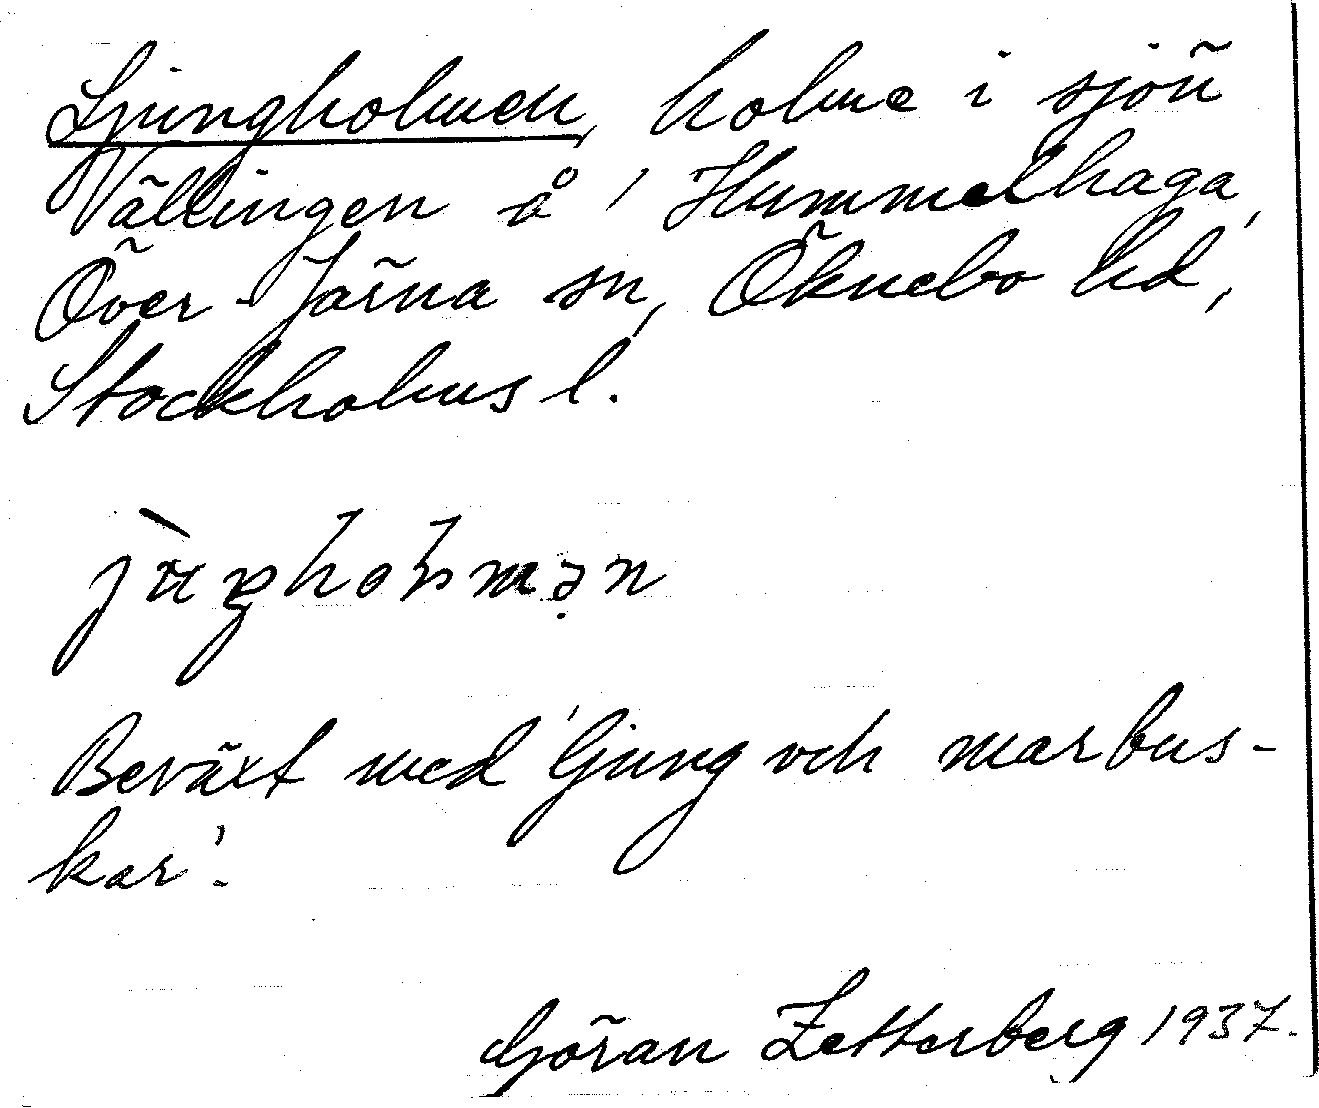 Ljungholmen, holme i sjön
Vällingen å ' Hummelhaga,
Över-Järna sn, Öknebo hd,
Stockholms l.
Beväxt med 'ljung och marbus-
kar'.
Göran Zetterberg 1937.